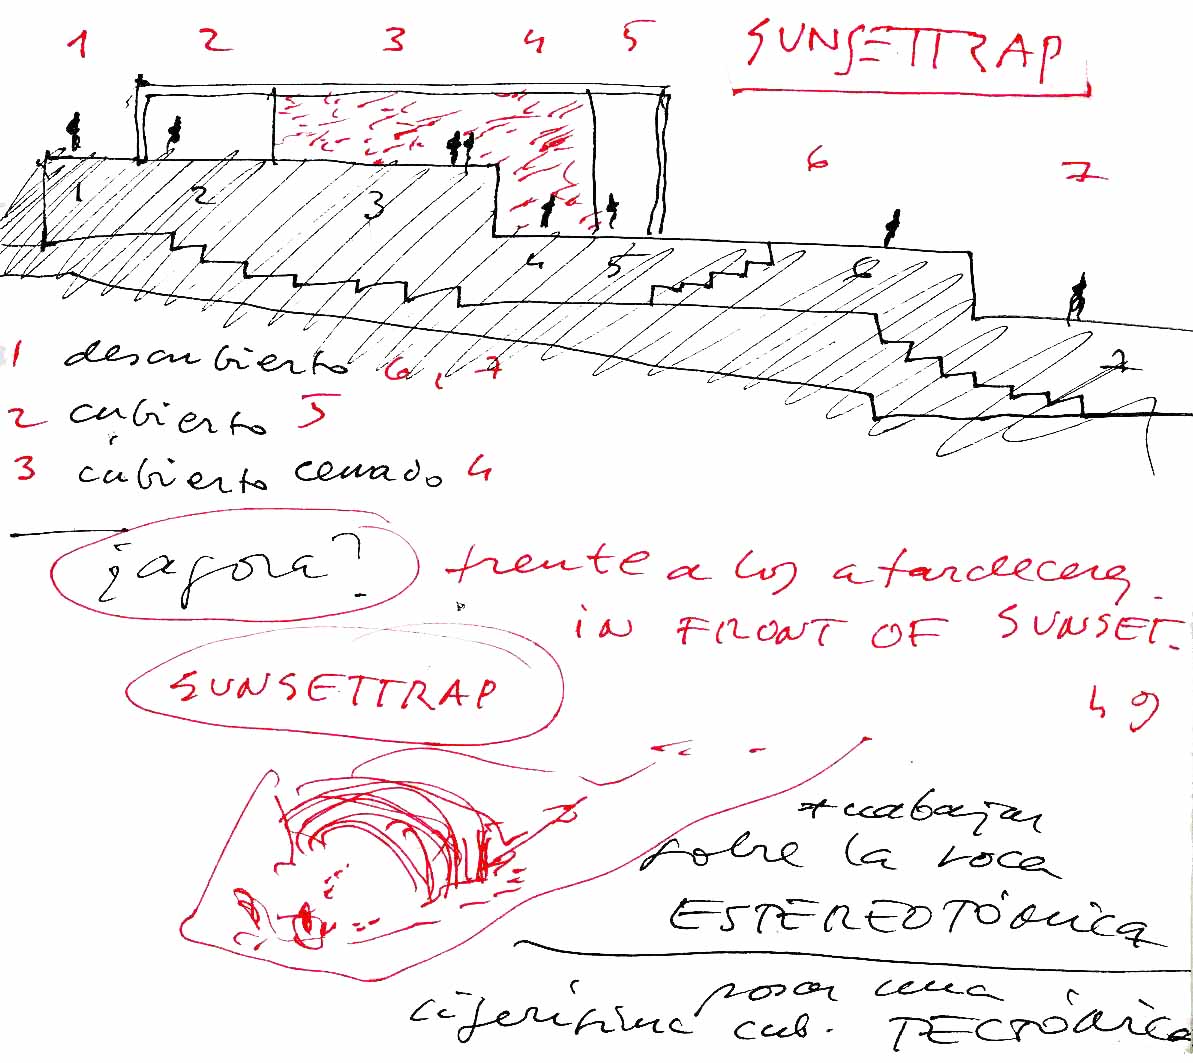 1 2 3 4 5 SUNSETTRAP
6 7
1 2 3
4 5 6
7
1 descubierto 6, 7
2 cubierto 5
3 cubierto cerrado 4
¿agora? frente a los atardeceres.
IN FRONT OF SUNSET.
SUNSETTRAP
trabajar
sobre la roca
ESTEREOTÓMICA
posar una
ligerísima cub. TECTÓNICA